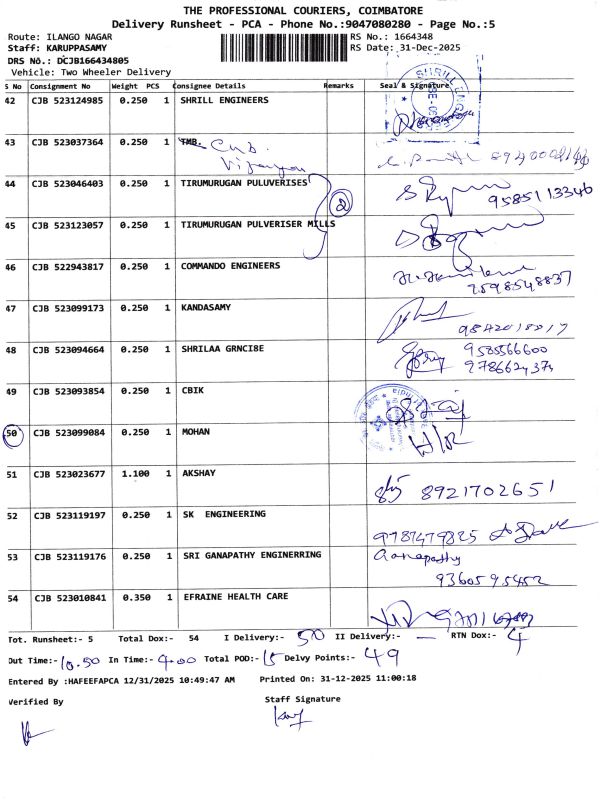 THE PROFESSIONAL COURIERS, COIMBATORE
Delivery Runsheet - PCA - Phone No.:9047080280 - Page No.:5
Route: ILANGO NAGAR RS No.: 1664348
Staff: KARUPPASAMY RS Date: 31-Dec-2025
DRS No.: DCJB166434805
Vehicle: Two Wheeler Delivery
S No Consignment No Weight PCS Consignee Details Remarks Seal & Signature
42 CJB 523124985 0.250 1 SHRILL ENGINEERS
43 CJB 523037364 0.250 1 TMB. Cub.
8940008146
44 CJB 523046403 0.250 1 TIRUMURUGAN PULUVERISES 9585113346
2
45 CJB 523123057 0.250 1 TIRUMURUGAN PULVERISER MILLS
46 CJB 522943817 0.250 1 COMMANDO ENGINEERS
7598548837
47 CJB 523099173 0.250 1 KANDASAMY
9842018017
48 CJB 523094664 0.250 1 SHRILAA GRNCI8E 9585566600
49 CJB 523093854 0.250 1 CBIK
50 CJB 523099084 0.250 1 MOHAN H/R
51 CJB 523023677 1.100 1 AKSHAY
8921702651
52 CJB 523119197 0.250 1 SK ENGINEERING
9787479825
53 CJB 523119176 0.250 1 SRI GANAPATHY ENGINERRING Ganapathy
9360595452
54 CJB 523010841 0.350 1 EFRAINE HEALTH CARE
Tot. Runsheet:- 5 Total Dox:- 54 I Delivery:- 50 II Delivery:- — RTN Dox:- 4
Out Time:- 10.50 In Time:- 4.00 Total POD:- 15 Delvy Points:- 49
Entered By :HAFEEFAPCA 12/31/2025 10:49:47 AM Printed On: 31-12-2025 11:00:18
Verified By Staff Signature